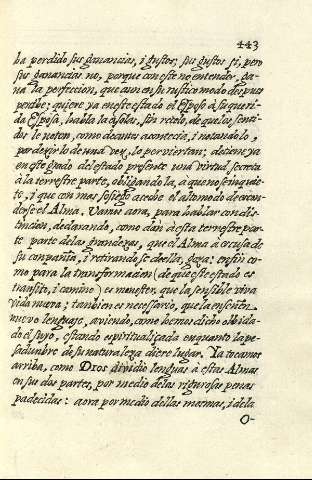 443
ha perdido sus ganancias, i gustos; sus gustos si, pero
sus ganancias no, porque con este no entender, ga-
na la perfeccion, que aun en su rustico modo despues
perdio; quiere ya en este estado el Esposo à su queri-
da Esposa, habla la à solas, sin recelo, de que los senti-
dos le noten, como de antes acontecia, i notando lo,
por dezir lo de una vez, lo perviertan; detiene ya
en este grado del estado presente una virtud secreta
à la terrestre parte, obligando la, a que no se inquie-
te, i que con mas sosiego acete el alto modo de
se el Alma. Vamos aora, para hablar con dis-
tincion, declarando, como dàn à esta terrestre par-
te parte de las grandezas, que el Alma à escusa de
su compañia, i retirando se de ella, goza: en fin co-
mo para la transformacion (de que este estado es
transito, i camino) es menester, que la sensible viva
vida nueva; tambien es necessario, que la enseñen
nuevo lenguaje, aviendo, como hemos dicho olvida-
do el suyo, estando espiritualiçada en quanto la pe-
sadumbre de su naturaleza diere lugar. Ya tocamos
arriba, como Dios dividio lenguas à estas Almas
en sus dos partes, por medio de las rigurosas penas
padecidas: aora por medio dellas mesmas, i de la
O-